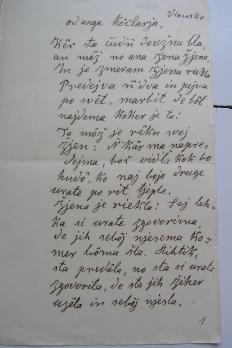 Vransko
od anga Kočlarja.
Kêr sta čudn dovžna bla,
an môž no ana žena žjena,
In je zmeram žjena rekla
Predejva nidva in pejva
po svêt, marbit de bôl
najdema koker je to!
Ta môž je rêku svoj
žjen: Nkâr ma napre.
Pejma, boš vidla kok bo
hudô, ko naj bojo druge
urate po rit tjeple.
Žjena je riekla: Sej lah-
ka si urate zgovorima,
de jih sebôj njesema ko-
mer bôma šla. Nihtik,
sta predala, no sta si urate
zgovorila, de sta jih žiher
uzela in sebôj njesla.
1